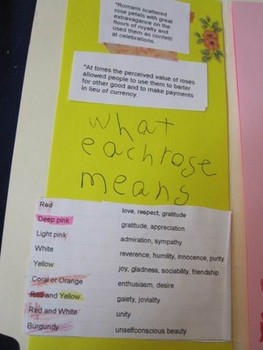 "Romans scattered
rose petals with great
extravagance on the
floors of royalty and
used them as confetti
at celebrations.
"At times the perceived value of roses
allowed people to use them to barter
for other good and to make payments
in lieu of currency.
what
each rose
means
Red love, respect, gratitude
Deep pink gratitude, appreciation
Light pink admiration, sympathy
White reverence, humility, innocence, purity
Yellow joy, gladness, sociability, friendship
Coral or Orange enthusiasm, desire
Red and Yellow gaiety, joviality
Red and White unity
Burgundy unselfconscious beauty